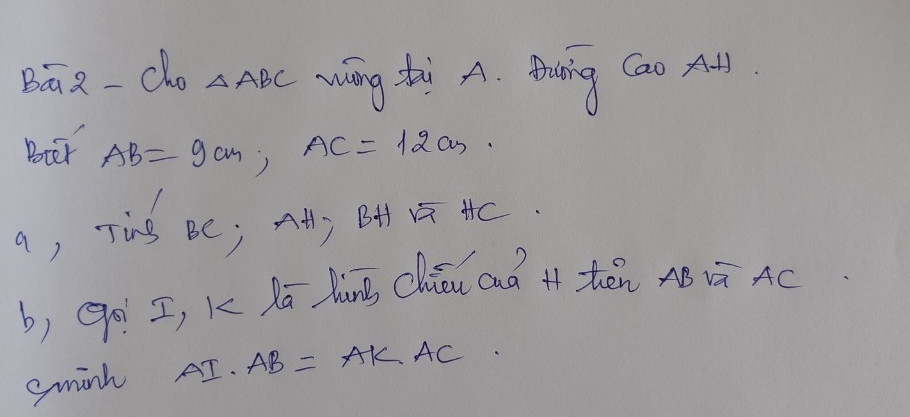 Bài 2 - Cho △ABC vuông tại A. Đường cao AH.
Biết AB = 9cm; AC = 12cm.
a, Tính BC; AH; BH và HC.
b, Gọi I, K là hình chiếu của H trên AB và AC.
cminh AI.AB = AK.AC.